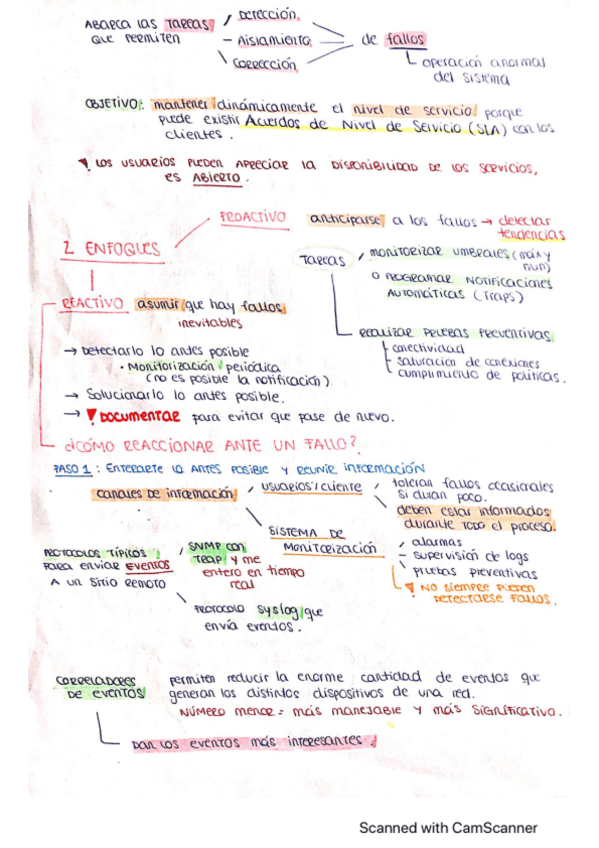 ABARCA LAS TAREAS QUE PERMITEN
DETECCIÓN,
- AISLAMIENTO,
CORRECCIÓN,
de fallos
operación anormal del sistema
OBJETIVO: mantener dinámicamente el nivel de servicio porque
puede existir Acuerdos de Nivel de Servicio (SLA) con los
clientes.
! LOS USUARIOS PUEDEN APRECIAR LA DISPONIBILIDAD DE LOS SERVICIOS,
ES ABIERTO.
2 ENFOQUES
PROACTIVO
anticiparse a los fallos → detectar tendencias
TAREAS
MONITORIZAR UMBRALES (máx y mín)
O PROGRAMAR NOTIFICACIONES
AUTOMÁTICAS (TRAPS)
REALIZAR PRUEBAS PREVENTIVAS
conectividad
saturación de conexiones
cumplimiento de políticas.
REACTIVO asumir que hay fallos
inevitables
→ Detectarlo lo antes posible
· Monitorización periódica
(no es posible la notificación).
→ Solucionarlo lo antes posible.
→ ! DOCUMENTAR para evitar que pase de nuevo.
¿CÓMO REACCIONAR ANTE UN FALLO?
PASO 1: ENTERARTE LO ANTES POSIBLE Y REUNIR INFORMACIÓN
canales de información
USUARIOS / CLIENTE
toleran fallos ocasionales
si duran poco.
deben estar informados
durante todo el proceso.
SISTEMA DE
MONITORIZACIÓN
alarmas
- supervisión de logs
pruebas preventivas
! NO SIEMPRE PUEDEN
DETECTARSE FALLOS.
PROTOCOLOS TÍPICOS
PARA ENVIAR EVENTOS
A UN SITIO REMOTO
SNMP CON
TRAP y me
entero en tiempo
real
PROTOCOLO syslog que
envía eventos.
CORRELADORES
DE EVENTOS
permiten reducir la enorme cantidad de eventos que
generan los distintos dispositivos de una red.
NÚMERO MENOR = MÁS MANEJABLE Y MÁS SIGNIFICATIVO.
DAN LOS EVENTOS MÁS INTERESANTES.
Scanned with CamScanner